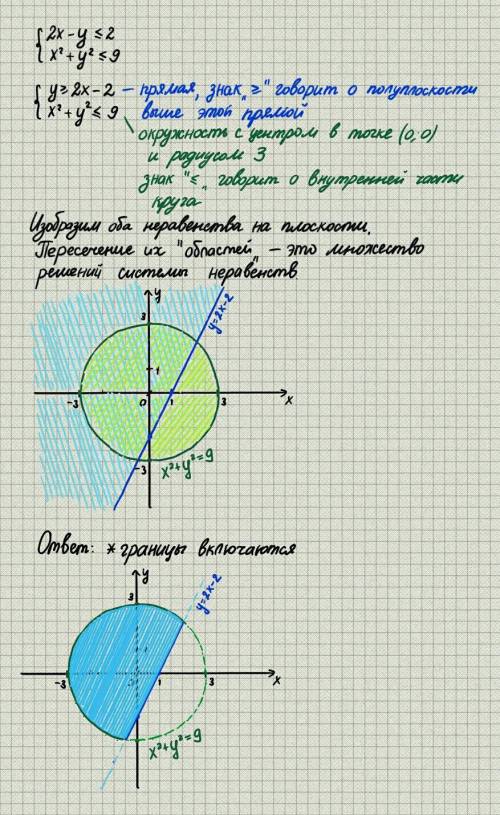 2x-y≤2
x²+y²≤9
y≥2x-2 — прямая, знак "≥" говорит о полуплоскости
выше этой прямой
x²+y²≤9
окружность с центром в точке (0,0)
и радиусом 3
знак "≤" говорит о внутренней части
круга
Изобразим оба неравенства на плоскости.
Пересечение их "областей" — это множество
решений системы неравенств
y
y=2x-2
3
1
-3
0
1
3
x
-3
x²+y²=9
Ответ: *границы включаются
y
y=2x-2
3
-3
1
3
x
x²+y²=9